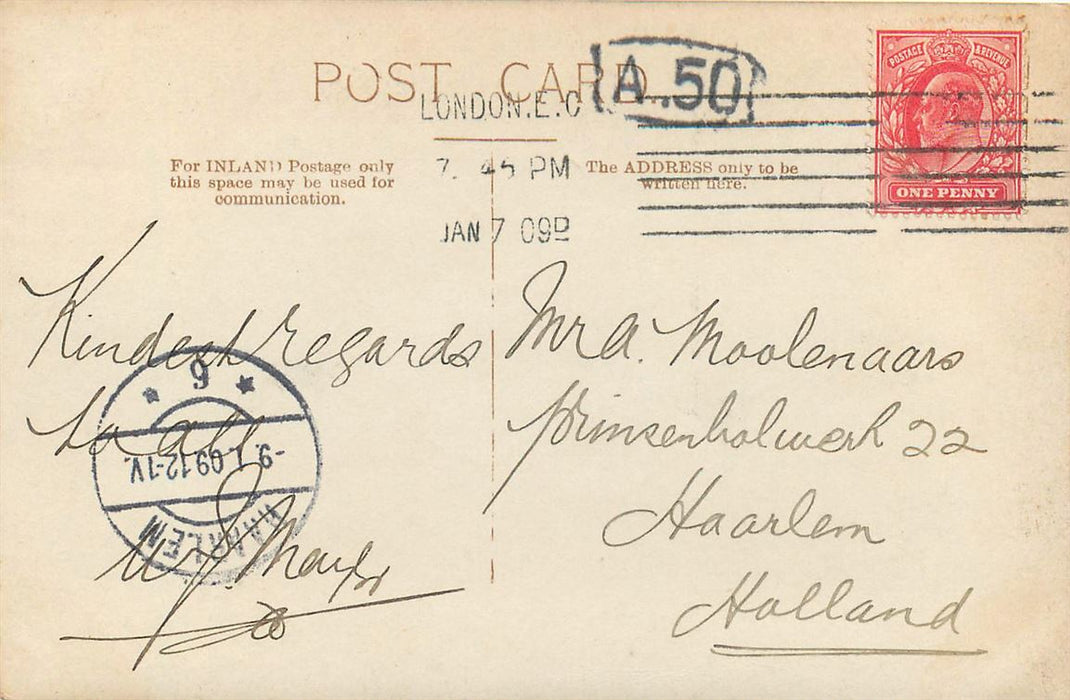 POST CARD
A.50
LONDON.E.C
7. 45 PM
JAN 7 09D
POSTAGE & REVENUE
ONE PENNY
For INLAND Postage only
this space may be used for
communication.
The ADDRESS only to be
written here.
Kindest regards
to all
W J.
Mr A. Moolenaars
Prinsenbolwerk 22
Haarlem
Holland
6
-9.1.09 12-1V.
HAARLEM